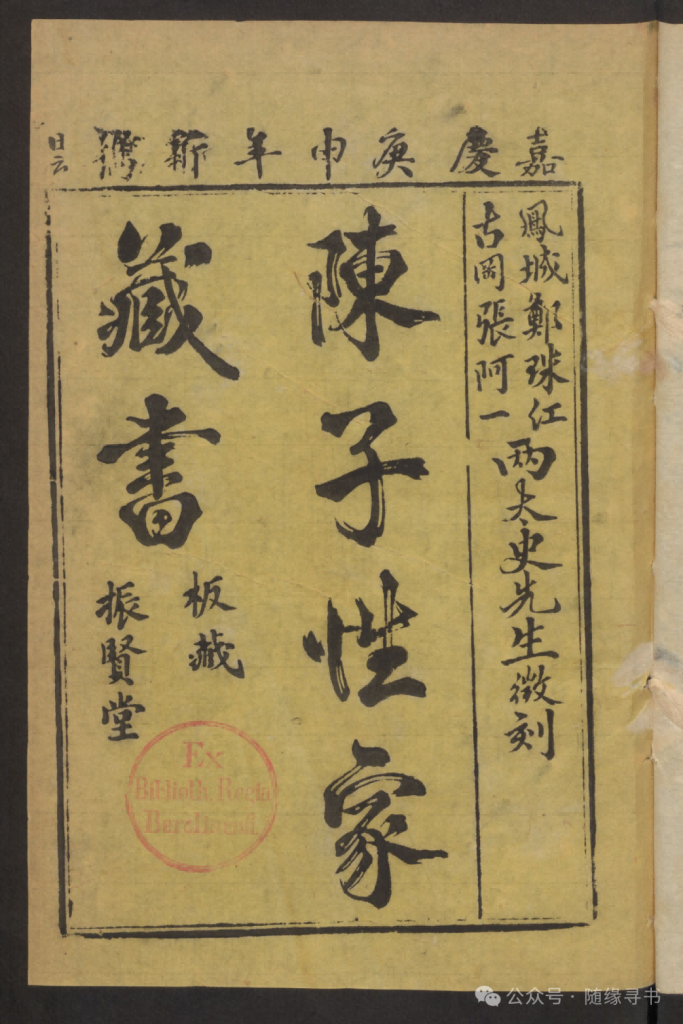 嘉慶庚申年新鐫
鳳城鄭珠江
古岡張阿一
兩太史先生徵刻
陳子性家
藏書
板藏
振賢堂
Ex
Biblioth. Regia
Berolinensi.
公众号·随缘寻书